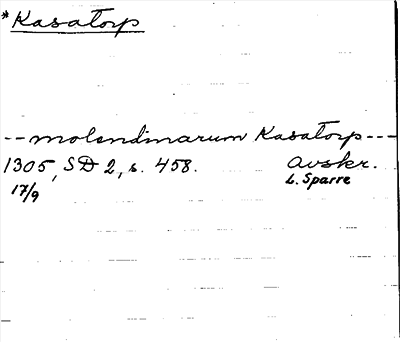 *Kasatorp
-- molendinarum Kasatorp ---
1305, SD 2, s. 458. Avskr.
17/9 L. Sparre